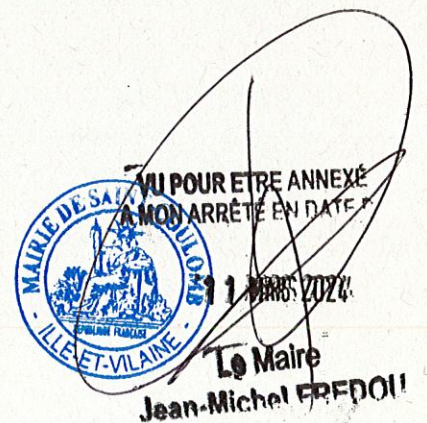 VU POUR ETRE ANNEXÉ
A MON ARRÊTÉ EN DATE D
11 MARS 2024
Le Maire
Jean-Michel FREDOU
MAIRIE DE SAINT COULOMB
REPUBLIQUE FRANCAISE
- ILLE-ET-VILAINE -